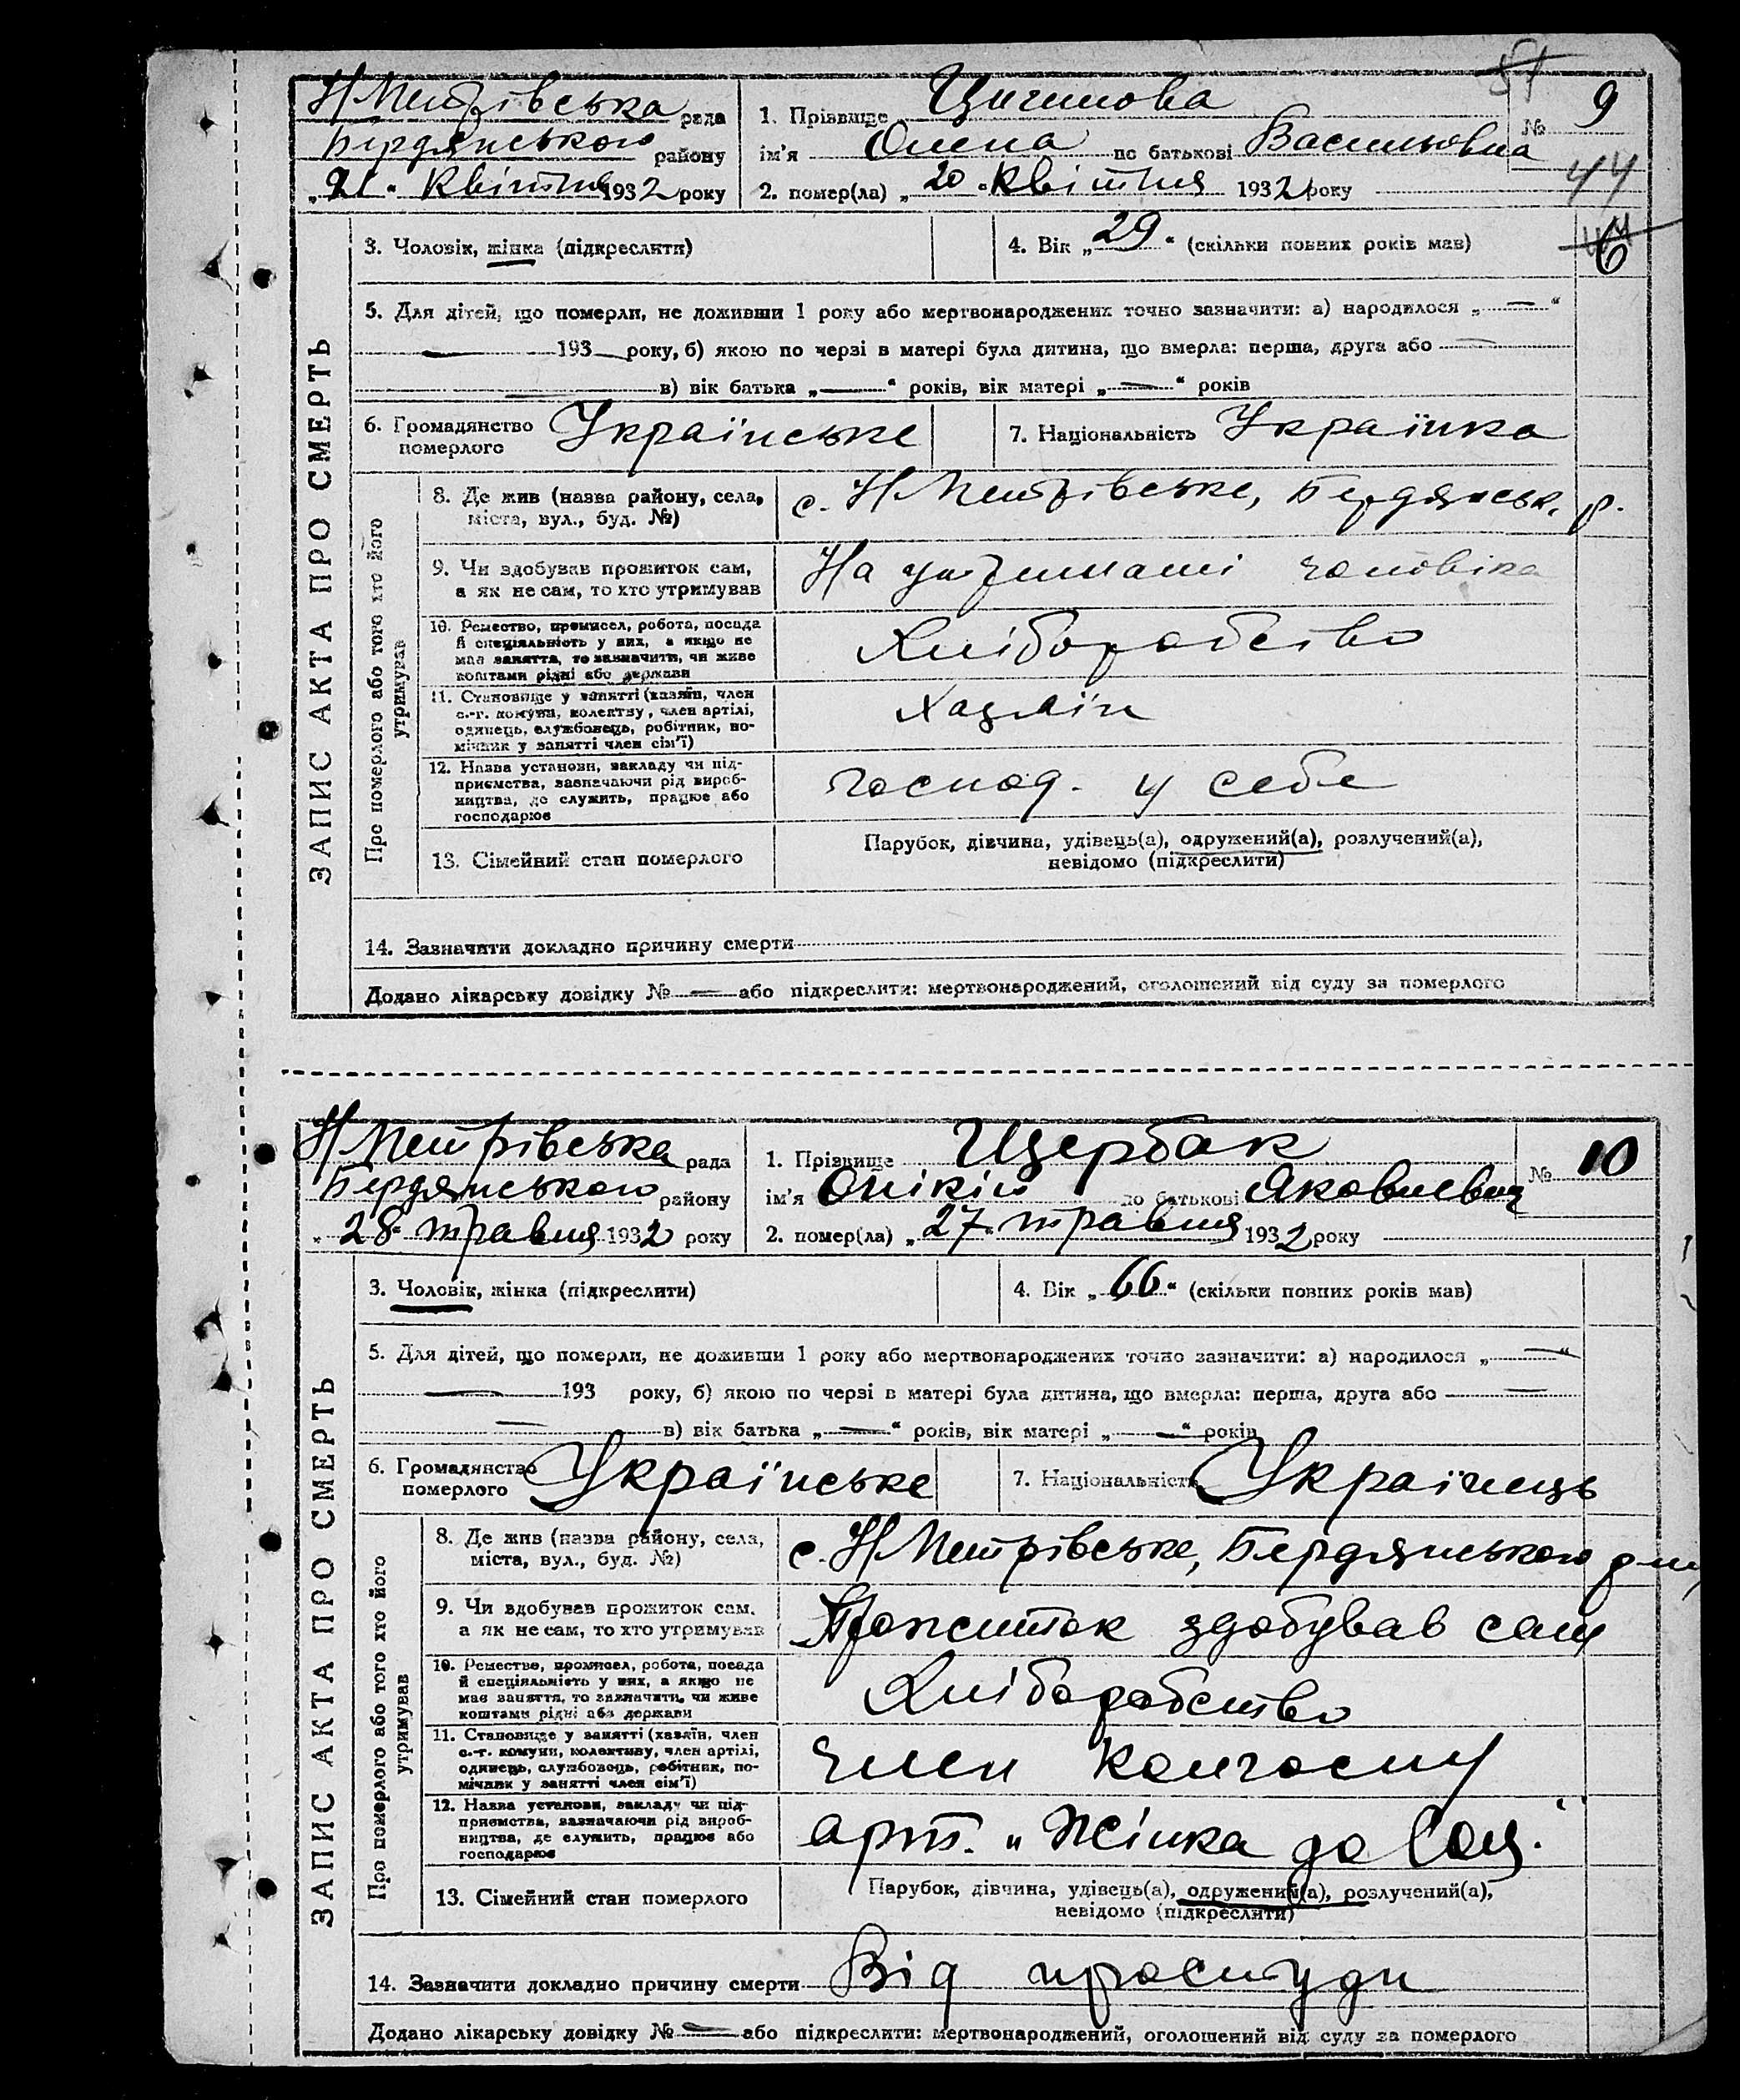 Н/Петрівська рада
Бердянського району
„21“ квітня 1932 року
1. Прізвище
ім'я Олена по батькові Васильовна
2. помер(ла) „20“ квітня 1932 року
№ 9
44
6
ЗАПИС АКТА ПРО СМЕРТЬ
3. Чоловік, жінка (підкреслити)
4. Вік „29“ (скільки повних років мав)
5. Для дітей, що померли, не доживши 1 року або мертвонароджених точно зазначити: а) народилося „—“
— 193— року, б) якою по черзі в матері була дитина, що вмерла: перша, друга або —
— в) вік батька „—“ років, вік матері „—“ років
6. Громадянство померлого Українське
7. Національність Українка
Про померлого або того хто його утримував
8. Де жив (назва району, села,
міста, вул., буд. №)
с. Н/Петрівське, Бердянськ. р.
9. Чи здобував прожиток сам,
а як не сам, то хто утримував
На утриманні чоловіка
10. Ремество, промисел, робота, посада
й спеціяльність у них, а якщо не
мав заняття, то зазначити, чи живе
коштами рідні або держави
Хліборобство
11. Становище у занятті (хазяїн, член
с.-г. комуни, колективу, член артілі,
одинець, службовець, робітник, по-
мічник у занятті член сім'ї)
Хазяїн
12. Назва установи, закладу чи під-
приємства, зазначаючи рід вироб-
ництва, де служить, працює або
господарює
господ. у себе
13. Сімейний стан померлого
Парубок, дівчина, удівець(а), одружений(а), розлучений(а),
невідомо (підкреслити)
14. Зазначити докладно причину смерти
Додано лікарську довідку № — або підкреслити: мертвонароджений, оголошений від суду за померлого
Н/Петрівська рада
Бердянського району
„28“ травня 1932 року
1. Прізвище Щербак
ім'я Онікій по батькові Яковлевич
2. помер(ла) „27“ травня 1932 року
№ 10
ЗАПИС АКТА ПРО СМЕРТЬ
3. Чоловік, жінка (підкреслити)
4. Вік „66“ (скільки повних років мав)
5. Для дітей, що померли, не доживши 1 року або мертвонароджених точно зазначити: а) народилося „—“
— 193 року, б) якою по черзі в матері була дитина, що вмерла: перша, друга або —
— в) вік батька „—“ років, вік матері „—“ років
6. Громадянство померлого Українське
7. Національність Українець
Про померлого або того хто його утримував
8. Де жив (назва району, села,
міста, вул., буд. №)
с. Н/Петрівське, Бердянського р-ну
9. Чи здобував прожиток сам,
а як не сам, то хто утримував
Прожиток здобував сам
10. Ремество, промисел, робота, посада
й спеціяльність у них, а якщо не
має заняття, то зазначити, чи живе
коштами рідні або держави
Хліборобство
11. Становище у занятті (хазяїн, член
с.-г. комуни, колективу, член артілі,
одинець, службовець, робітник, по-
мічник у занятті член сім'ї)
член колгоспу
12. Назва установи, закладу чи під-
приємства, зазначаючи рід вироб-
ництва, де служить, працює або
господарює
арт. „Жінка до Соц.“
13. Сімейний стан померлого
Парубок, дівчина, удівець(а), одружений(а), розлучений(а),
невідомо (підкреслити)
14. Зазначити докладно причину смерти Від простуди
Додано лікарську довідку № — або підкреслити: мертвонароджений, оголошений від суду за померлого